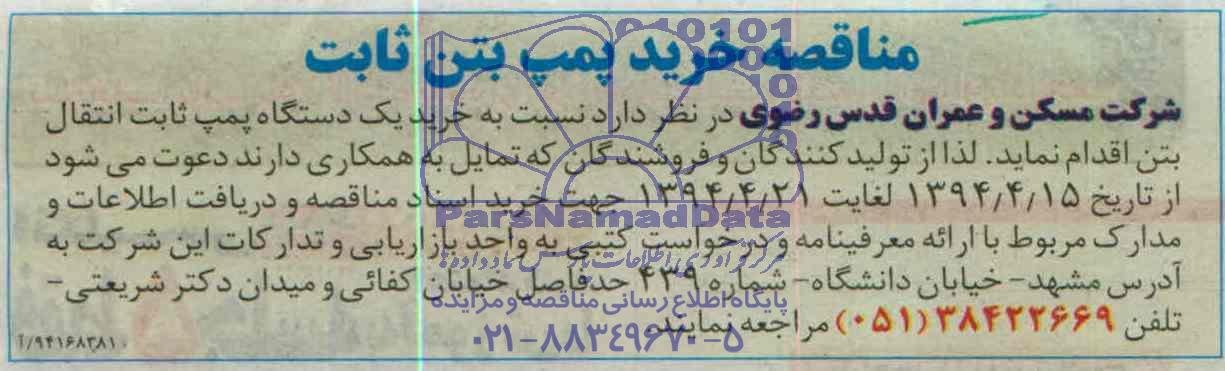 مناقصه خرید پمپ بتن ثابت
شرکت مسکن و عمران قدس رضوی در نظر دارد نسبت به خرید یک دستگاه پمپ ثابت انتقال
بتن اقدام نماید. لذا از تولید کنندگان و فروشندگان که تمایل به همکاری دارند دعوت می شود
از تاریخ ۱۳۹۴/۴/۱۵ لغایت ۱۳۹۴/۴/۲۱ جهت خرید اسناد مناقصه و دریافت اطلاعات و
مدارک مربوط با ارائه معرفینامه و درخواست کتبی به واحد بازاریابی و تدارکات این شرکت به
آدرس مشهد- خیابان دانشگاه- شماره ۴۳۹ حدفاصل خیابان کفائی و میدان دکتر شریعتی-
تلفن ۳۸۴۲۲۶۶۹ (۰۵۱) مراجعه نمایند.
۹۴۱۶۸۳۸۱/آ
ParsNamadData
مرکز فرآوری اطلاعات پارس نماد داده ها
پایگاه اطلاع رسانی مناقصه و مزایده
۰۲۱-۸۸۳۴۹۶۷۰-۵